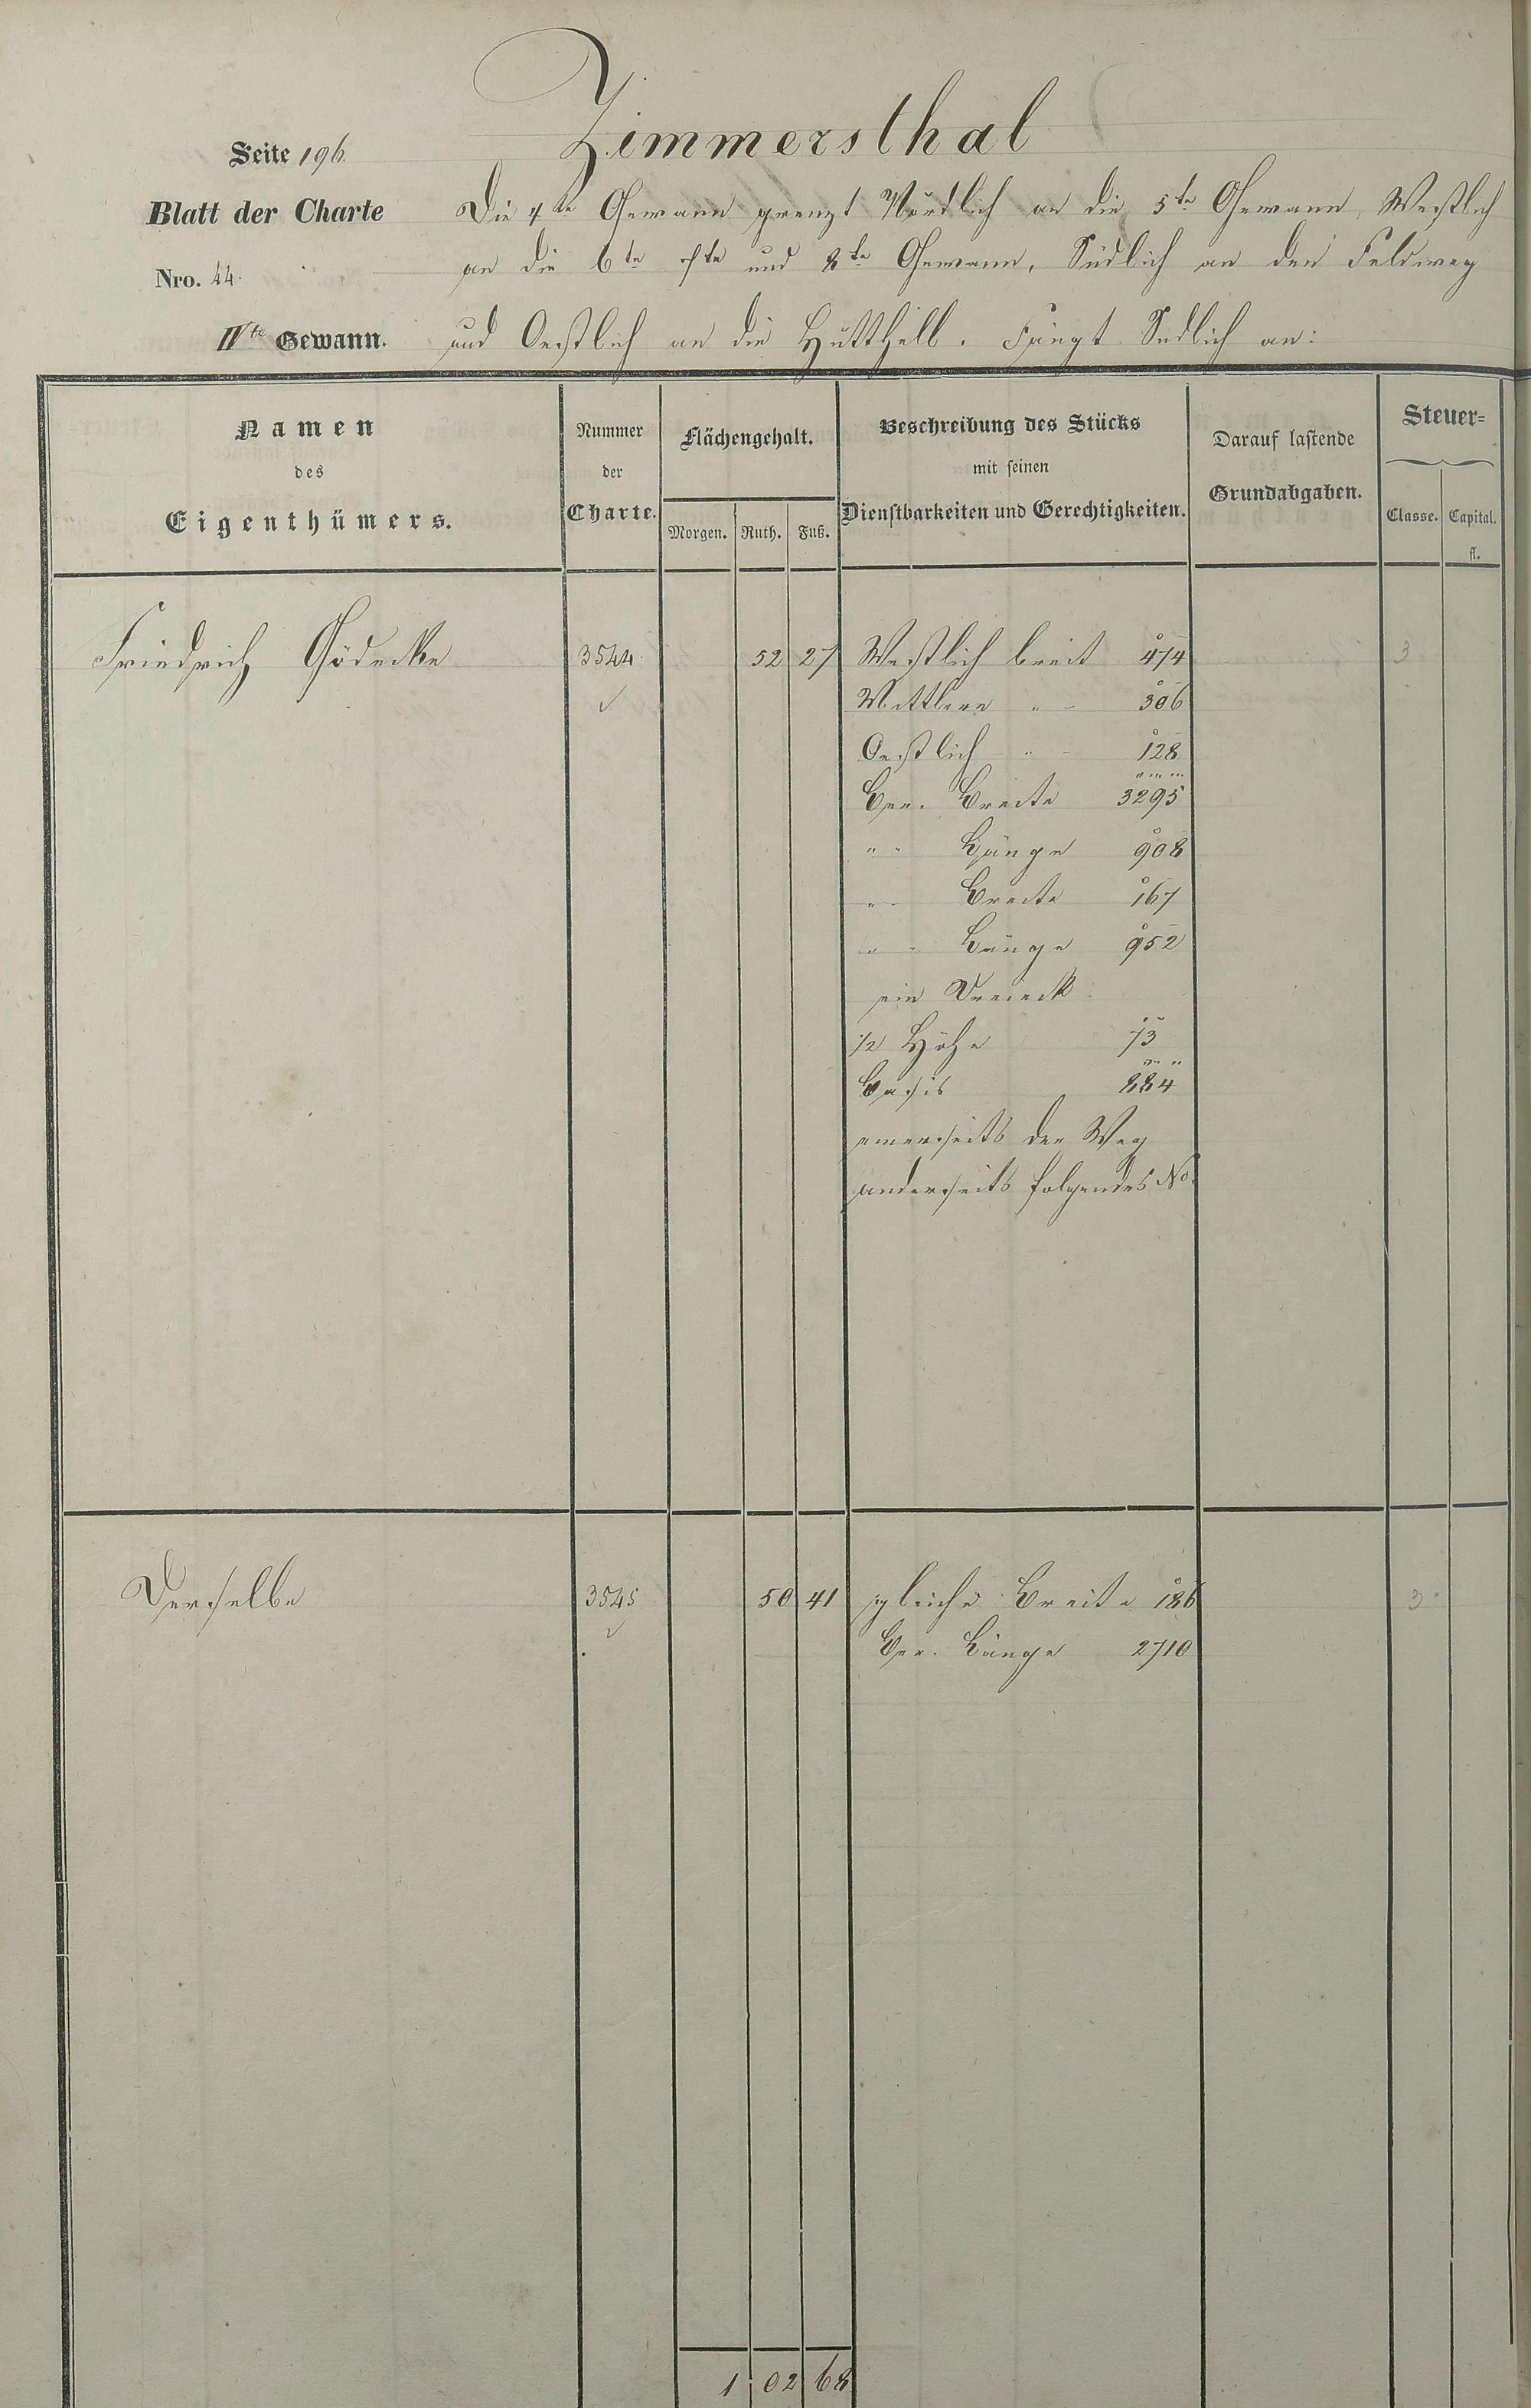 Zimmersthal
Seite 196.
Blatt der Charte
Nro. 44.
IVte Gewann.
Die 4te Gewann grenzt Nördlich an die 5te Gewann, Westlich
an die 6te 7te und 8te Gewann, Südlich an den Feldweg
und Oestlich an die Hütthell. Fängt Südlich an:
Namen
des
Eigenthümers.
Nummer
der
Charte.
Flächengehalt.
Morgen. Ruth. Fuß.
Beschreibung des Stücks
mit seinen
Dienstbarkeiten und Gerechtigkeiten.
Darauf lastende
Grundabgaben.
Steuer=
Classe. Capital.
fl.
Friedrich Gödecke 3544 52 27 Westlich breit 474 3
Mittlere " 306
Oestlich " 128
Ber. Breite 3295
" " Länge 908
" " Breite 167
" " Länge 952
ein Dreieck
1/2 Höhe 73
Basis 884
einerseits der Weg
anderseits folgendes No.
Derselbe 3545 50 41 gleiche Breite 186 3
Ber. Länge 2710
1 02 68